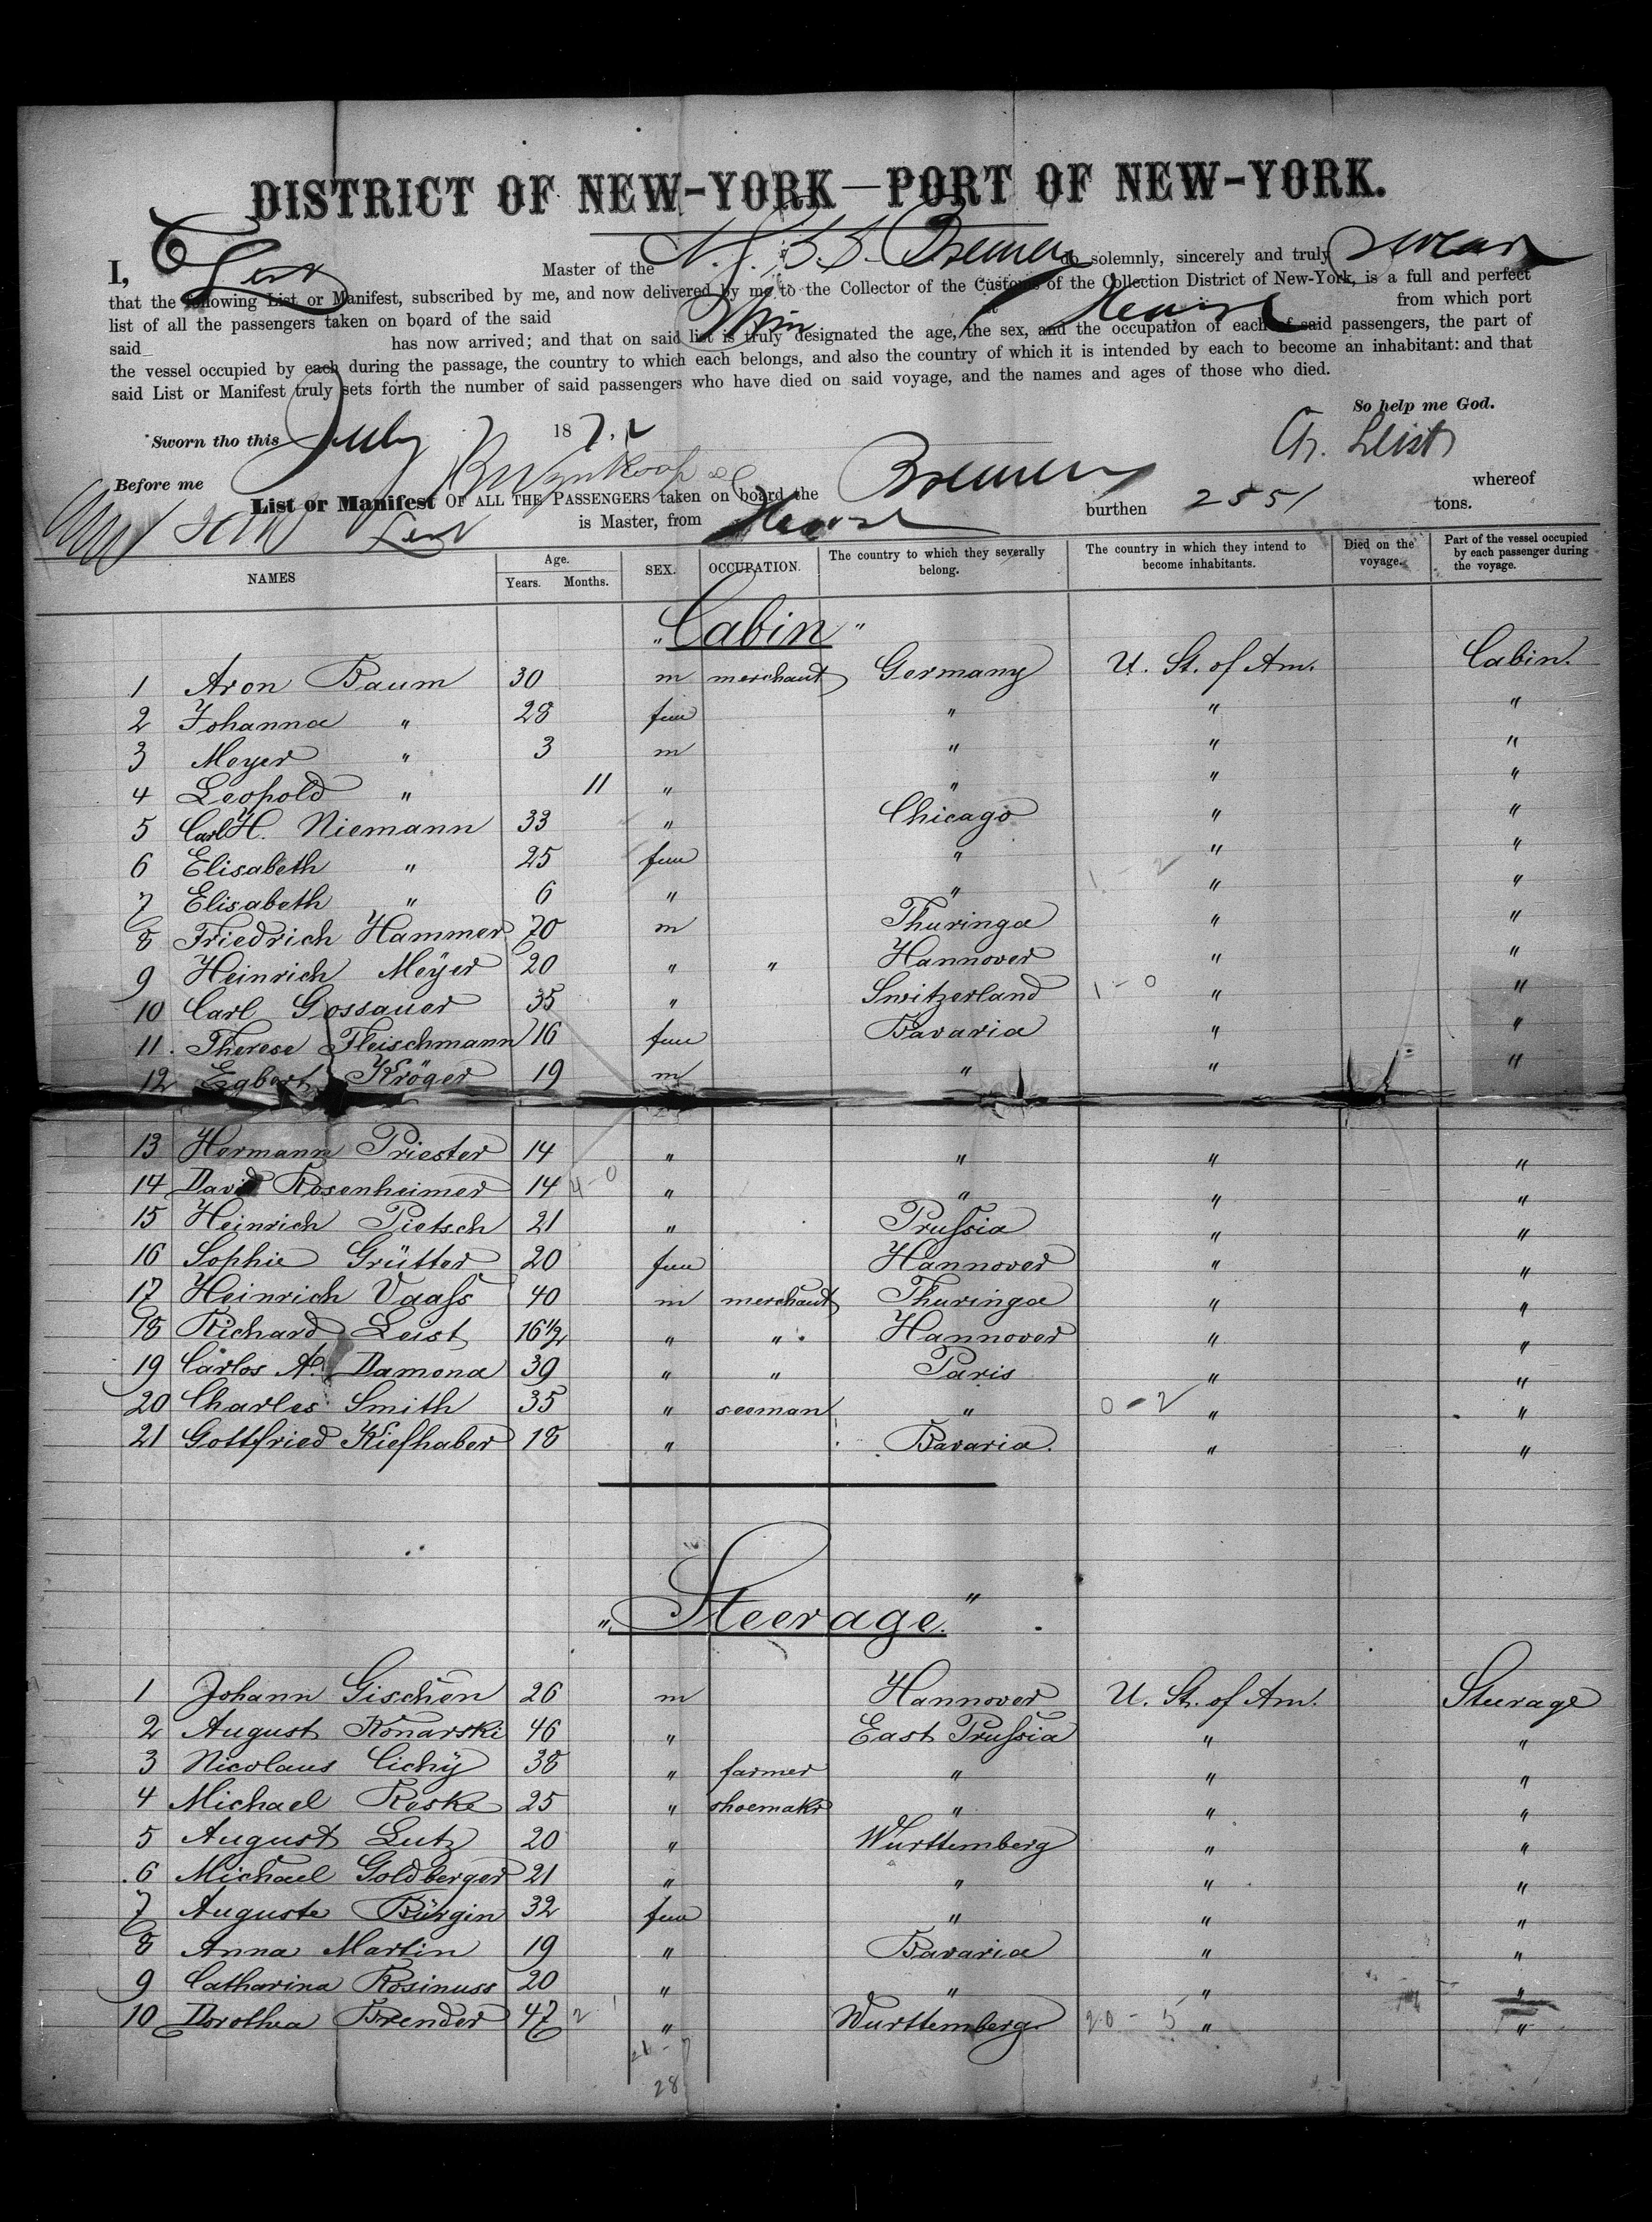 DISTRICT OF NEW-YORK—PORT OF NEW-YORK.
I, G Leist Master of the N. G. S.S. Bremen do solemnly, sincerely and truly swear
that the following List or Manifest, subscribed by me, and now delivered by me to the Collector of the Customs of the Collection District of New-York, is a full and perfect
list of all the passengers taken on board of the said Ship at Havre from which port
said has now arrived; and that on said list is truly designated the age, the sex, and the occupation of each of said passengers, the part of
the vessel occupied by each during the passage, the country to which each belongs, and also the country of which it is intended by each to become an inhabitant: and that
said List or Manifest truly sets forth the number of said passengers who have died on said voyage, and the names and ages of those who died.
So help me God.
Sworn tho this July 7 187
G. Leist
Before me
List or Manifest OF ALL THE PASSENGERS taken on board the Bremen whereof
Leist is Master, from Havre burthen 2551 tons.
NAMES Age. Years. Months. SEX. OCCUPATION. The country to which they severally belong. The country in which they intend to become inhabitants. Died on the voyage. Part of the vessel occupied by each passenger during the voyage.
"Cabin"
1 Aron Baum 30 m merchant Germany U. St. of Am. Cabin.
2 Johanna " 28 fem " " "
3 Meyer " 3 m " " "
4 Leopold " 11 " " " "
5 Carl H. Niemann 33 " Chicago " "
6 Elisabeth " 25 fem " " "
7 Elisabeth " 6 " " 1-2 " "
8 Friedrich Hammer 70 m Thuringa " "
9 Heinrich Meÿer 20 " " Hannover " "
10 Carl Gossauer 35 " Switzerland 1-0 " "
11. Therese Fleischmann 16 fem Bavaria " "
12 Egbert Kröger 19 m " " "
13 Hermann Priester 14 " " " "
14 David Rosenheimer 14 4-0 " " " "
15 Heinrich Pietsch 21 " Prussia " "
16 Sophie Grütter 20 fem Hannover " "
17 Heinrich Vaass 40 m merchant Thuringa " "
18 Richard Leist 16½ " " Hannover " "
19 Carlos A. Damona 39 " " Paris " "
20 Charles Smith 35 " seeman " 0-2 " "
21 Gottfried Kiefhaber 18 " Bavaria. " "
"Steerage."
1 Johann Gischen 26 m Hannover U. St. of Am. Steerage
2 August Konarski 46 " East Prussia " "
3 Nicolaus Cichÿ 38 " farmer " " "
4 Michael Roske 25 " shoemakr " " "
5 August Lutz 20 " Wurttemberg " "
6 Michael Goldberger 21 " " " "
7 Auguste Bürgin 32 fem " " "
8 Anna Martin 19 " Bavaria " "
9 Catharina Rosinuss 20 " " " "
10 Dorothea Brender 47 2 " Wurttemberg. 20-5 " "
28